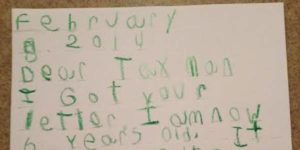 February
8. 2014
Dear Tax man
I Got your
letter I am now
6 years old. It